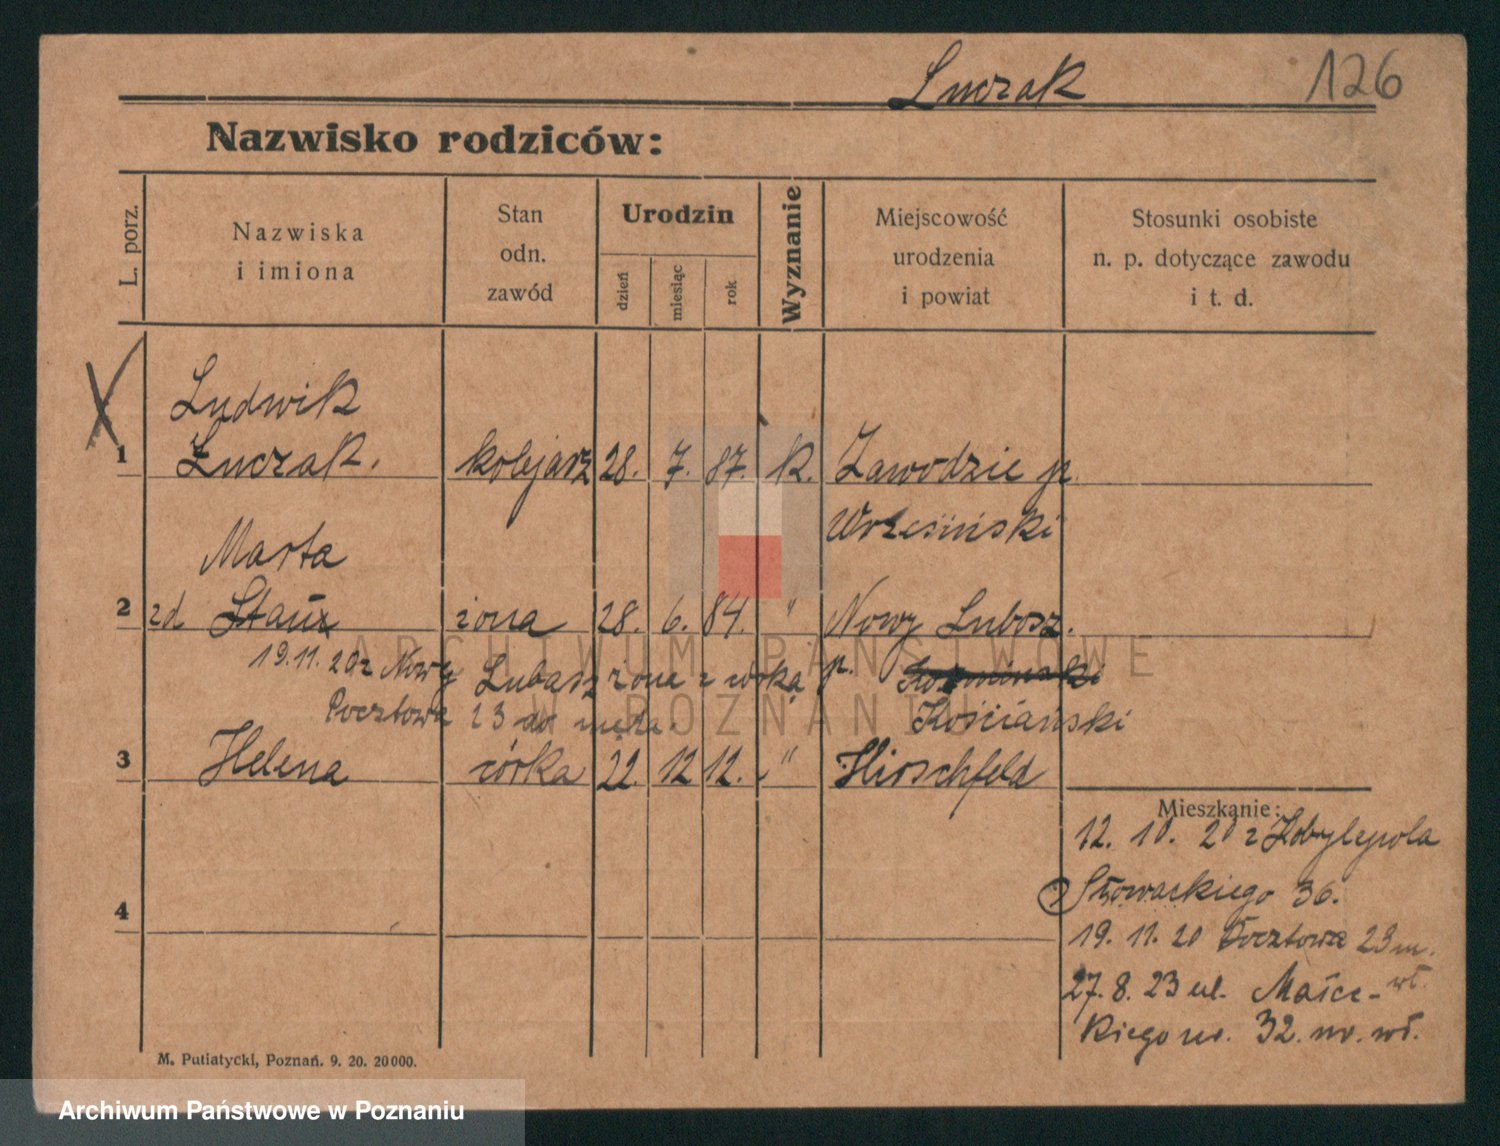 Luczak
126
Nazwisko rodziców:
L. porz.
Nazwiska
i imiona
Stan
odn.
zawód
Urodzin
dzień
miesiąc
rok
Wyznanie
Miejscowość
urodzenia
i powiat
Stosunki osobiste
n. p. dotyczące zawodu
i t. d.
Ludwik
1 Łuczak. kolejarz 28. 7. 87. k. Zawodzie p.
Wrzesiński
Marta
2 zd żona 28. 6. 84. " Nowy Lubosz.
19.11.20 z Nowy Lubosz żona z córką p.
Pocztowa 23 do męża. Kościański
3 Helena córka 22. 12 12. " Hirschfeld
Mieszkanie:
12. 10. 20 z Kobylepola
Słowackiego 36.
4
19. 11. 20 Pocztowa 23 m.
wł.
27. 8. 23 ul. Małec-
kiego nr. 32. m. wł.
M. Putiatycki, Poznań. 9. 20. 20000.
ARCHIWUM PAŃSTWOWE
W POZNANIU
Archiwum Państwowe w Poznaniu